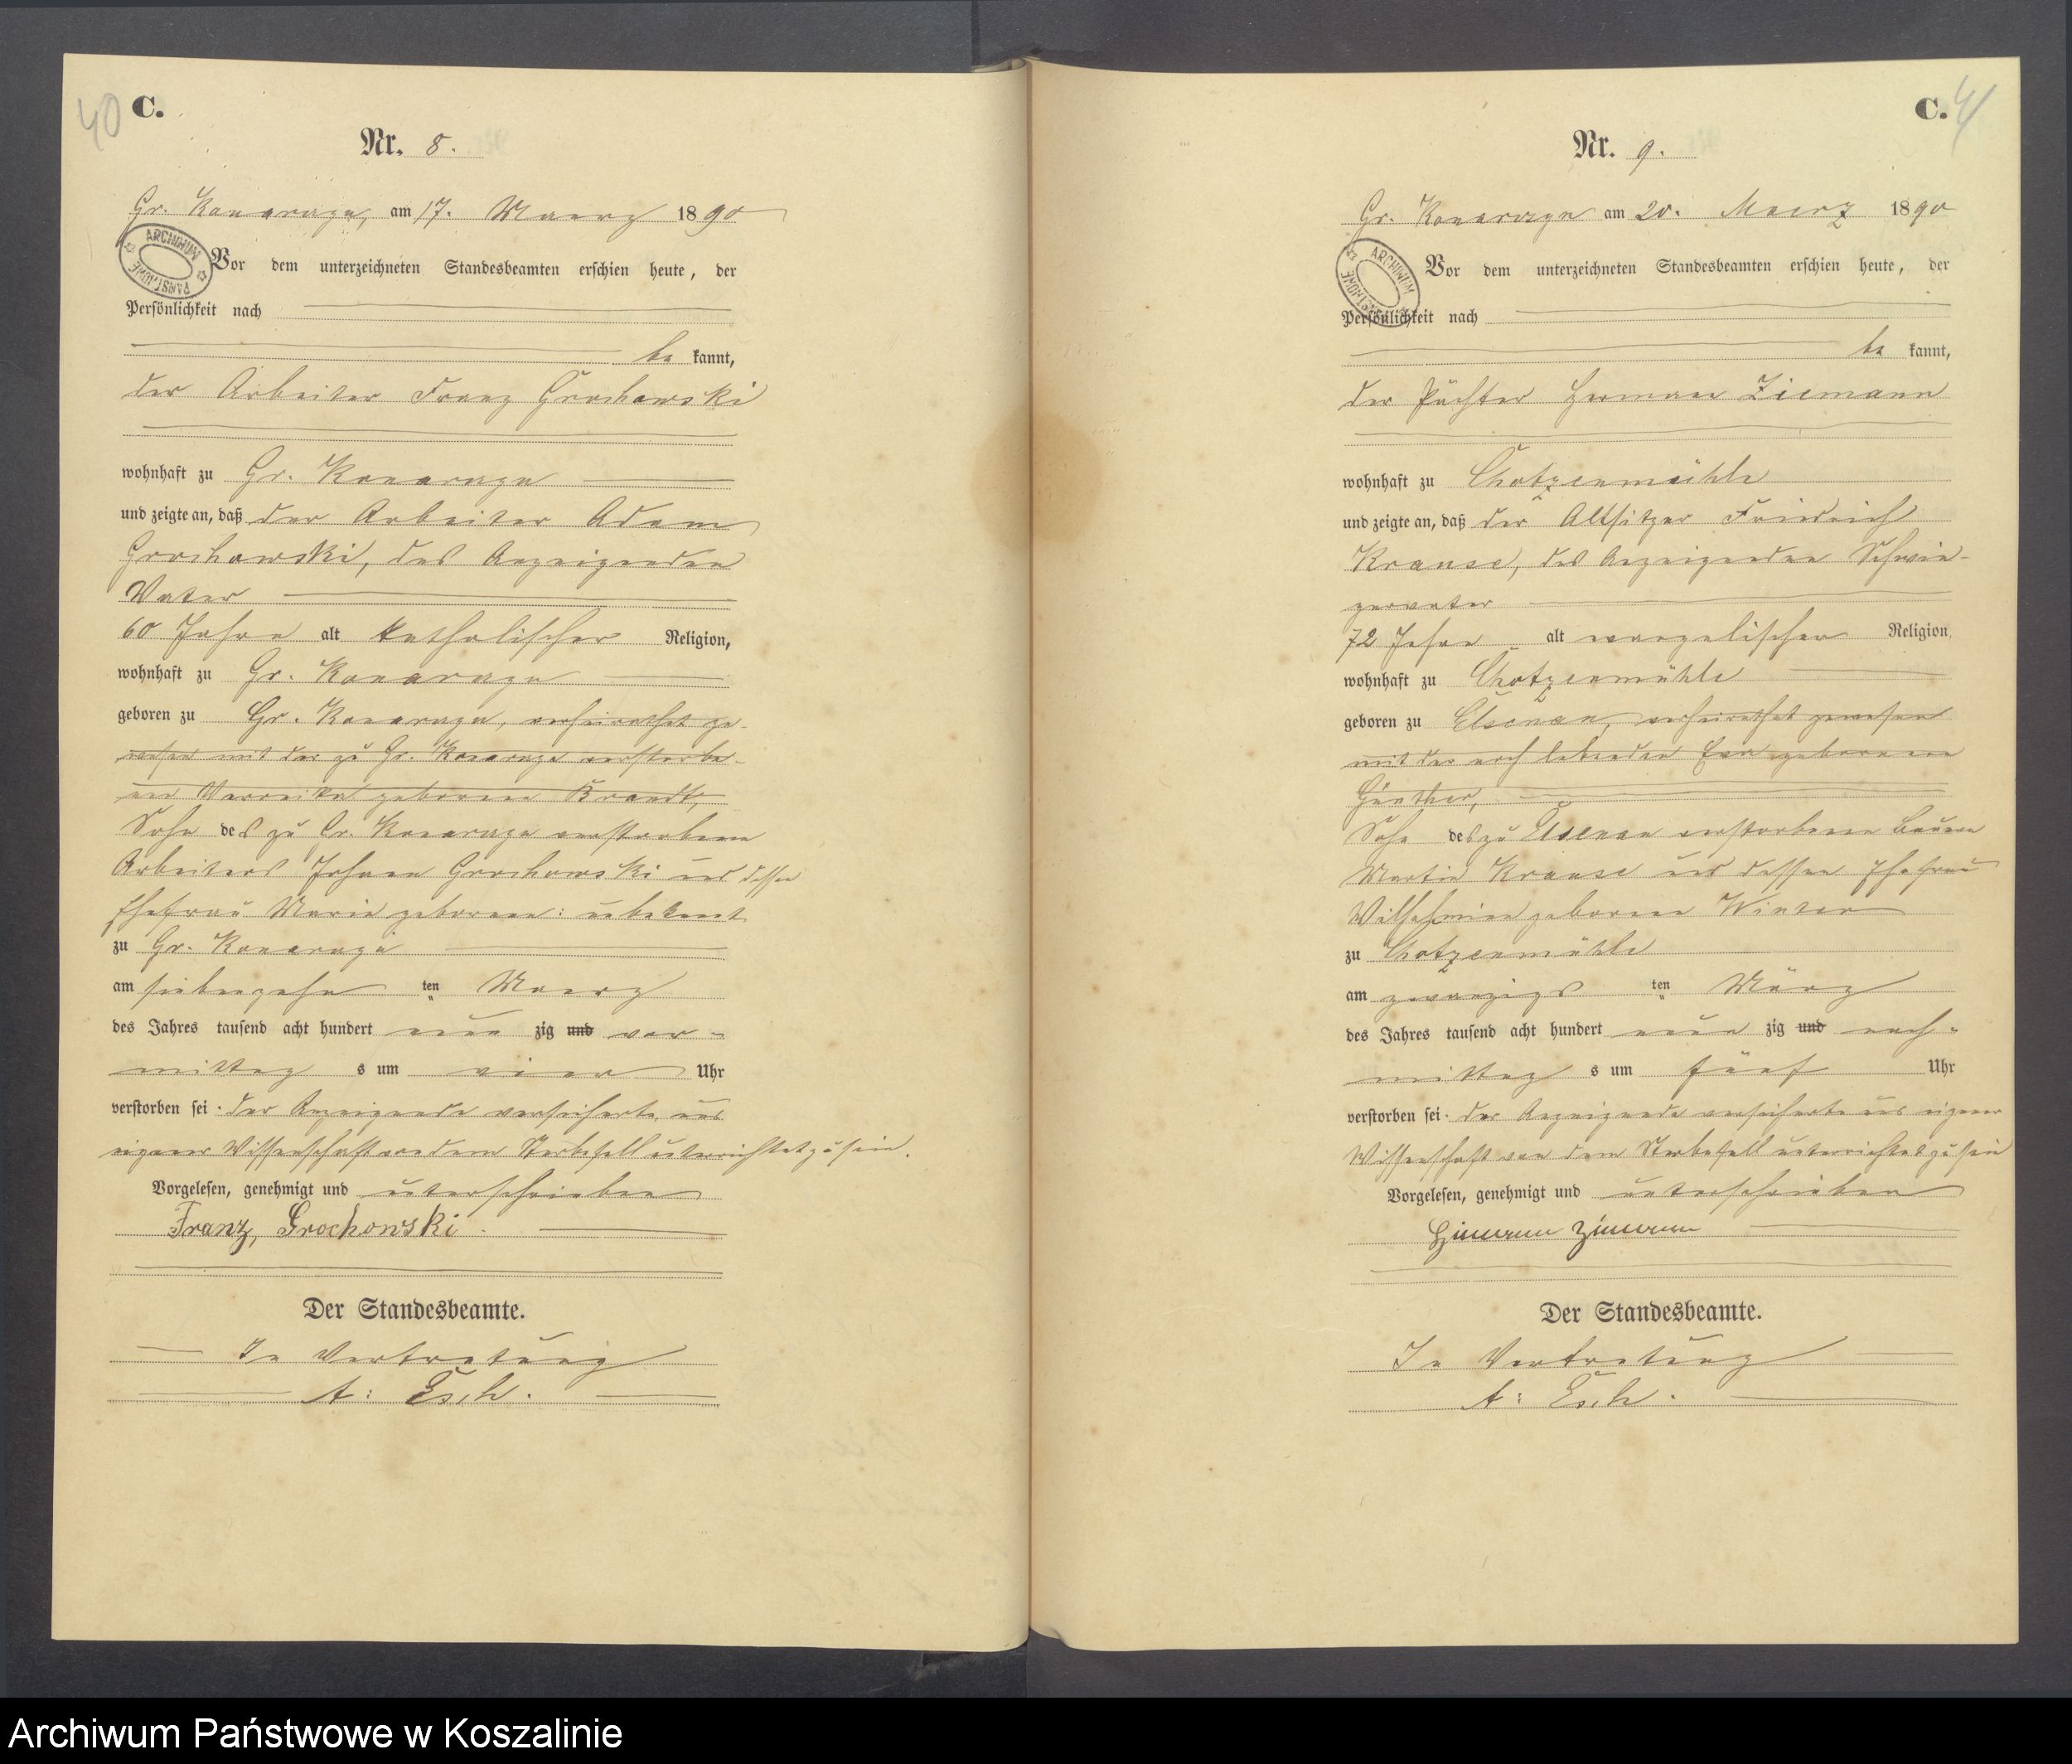 40 C.
Nr. 8.
Gr. Konarczyn, am 17. Maerz 1890
ARCHIWUM PAŃSTWOWE
Vor dem unterzeichneten Standesbeamten erschien heute, der
Persönlichkeit nach
be kannt,
der Arbeiter Franz Grochowski
wohnhaft zu Gr. Konarczyn
und zeigte an, daß der Arbeiter Adam
Grochowski, des Anzeigenden
Vater
60 Jahre alt katholischer Religion,
wohnhaft zu Gr. Konarczyn
geboren zu Gr. Konarczyn, verheirathet ge-
wesen mit der zu Gr. Konarczyn verstorbe-
nen geborene Brandt,
Sohn des zu Gr. Konarczyn verstorbenen
Arbeiters Johann Grochowski und dessen
Ehefrau Marie geborene: unbekannt
zu Gr. Konarczyn
am siebenzehn ten Maerz
des Jahres tausend acht hundert neun zig und vor-
mittag s um vier Uhr
verstorben sei. der Anzeigende versicherte aus
eigener Wissenschaft von dem Sterbefall unterrichtet zu sein.
Vorgelesen, genehmigt und unterschrieben
Franz, Grochowski.
Der Standesbeamte.
In Vertretung
A: Esch.
C. 41
Nr. 9.
Gr. Konarczyn am 20. Maerz 1890
ARCHIWUM PAŃSTWOWE
Vor dem unterzeichneten Standesbeamten erschien heute, der
Persönlichkeit nach
be kannt,
der Pächter Herman Ziemann
wohnhaft zu Chotzenmühle
und zeigte an, daß der Altsitzer Friedrich
Krause, des Anzeigenden Schwie-
gervater
72 Jahre alt evangelischer Religion,
wohnhaft zu Chotzenmühle
geboren zu Elsenau, verheirathet gewesen
mit der noch lebenden Eva geborenen
Günther,
Sohn des zu Elsenau verstorbenen Bauern
Martin Krause und dessen Ehefrau
Wilhelmine geborene Winter
zu Chotzenmühle
am zwanzigs ten März
des Jahres tausend acht hundert neun zig und nach-
mittag s um fünf Uhr
verstorben sei. der Anzeigende versicherte aus eigener
Wissenschaft von dem Sterbefall unterrichtet zu sein
Vorgelesen, genehmigt und unterschrieben
Hermann Ziemann
Der Standesbeamte.
In Vertretung
A: Esch.
Archiwum Państwowe w Koszalinie